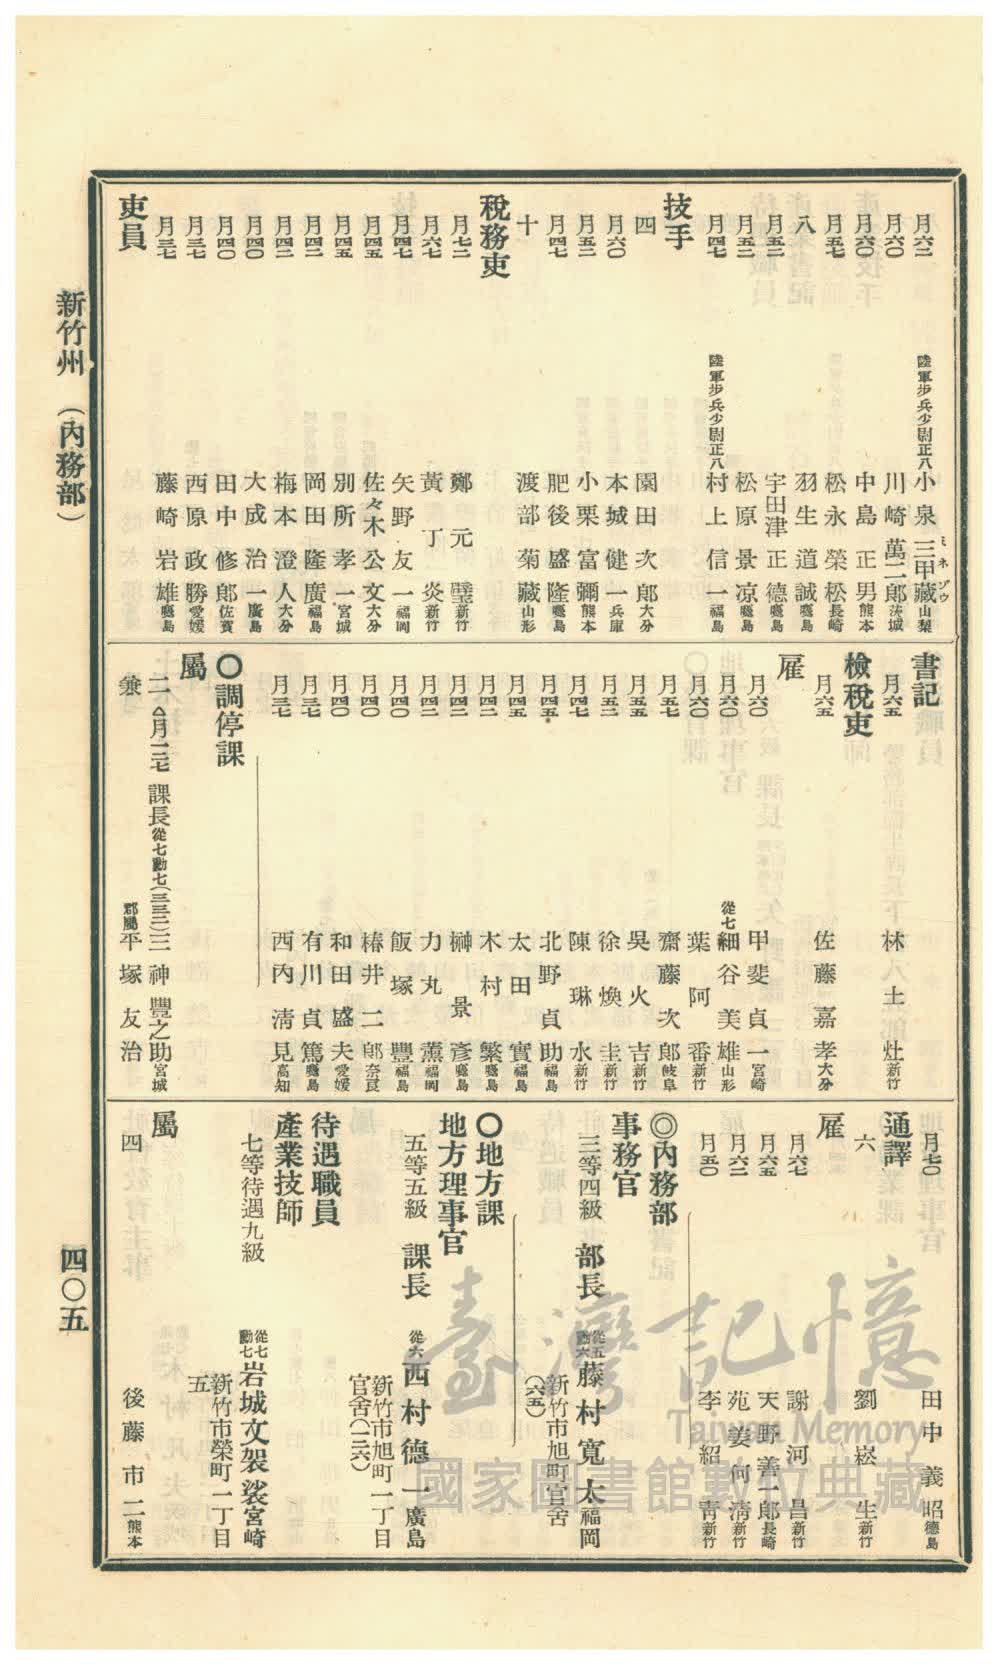 月六二 陸軍步兵少尉正八 小泉三甲藏 山梨
ミネゾウ
月六〇 川崎萬二郎 茨城
月六〇 中島正男 熊本
月五七 松永榮松 長崎
八 羽生道誠 鹿兒島
月五二 宇田津正德 鹿兒島
月五二 松原景凉 鹿兒島
月四七 陸軍步兵少尉正八 村上信一 福島
技手
四 園田次郎 大分
月六〇 本城健一 兵庫
月五二 小栗富彌 熊本
月四七 肥後盛隆 鹿兒島
十 渡部菊藏 山形
稅務吏
月七二 鄭元璧 新竹
月六七 黃丁炎 新竹
月四七 矢野友一 福岡
月四五 佐々木公文 大分
月四五 別所孝一 宮城
月四二 岡田隆廣 福島
月四二 梅本澄人 大分
月四〇 大成治一 廣島
月四〇 田中修郎 佐賀
月三七 西原政勝 愛媛
月三七 藤崎岩雄 鹿兒島
吏員
書記
月六五 林土灶 新竹
檢稅吏
月六五 佐藤嘉孝 大分
雇
月六〇 甲斐貞一 宮崎
月六〇 從七 細谷美雄 山形
月六〇 葉阿番 新竹
月五七 齋藤次郎 岐阜
月五五 吳火吉 新竹
月五二 徐煥圭 新竹
月四七 陳琳水 新竹
月四五 北野貞助 福島
月四五 太田實 福島
月四二 木村繁 鹿兒島
月四二 榊景彥 鹿兒島
月四二 力丸薰 福岡
月四〇 飯塚豐 福島
月四〇 椿井二郎 奈良
月四〇 和田盛夫 愛媛
月三七 有川貞篤 鹿兒島
月三七 西內淸見 高知
〇調停課
屬
二、△月二七 課長 從七勳七(三三二) 三神豐之助 宮城
兼 郡屬 平塚友治
月七〇 田中義昭 德島
通譯
六 劉崧生 新竹
雇
月六七 謝河昌 新竹
月六五 天野善一郎 長崎
月六二 苑姜何淸 新竹
月五〇 李紹靑 新竹
◎內務部
事務官
三等四級 部長 從五勳六 藤村寬太 福岡
新竹市旭町官舍
(六五)
〇地方課
地方理事官
五等五級 課長 從六 西村德一 廣島
新竹市旭町一丁目
官舍(一二六)
待遇職員
產業技師
七等待遇九級 從七勳七 岩城文袈裟 宮崎
新竹市榮町二丁目
五
屬
四 後藤市二 熊本
新竹州 (內務部) 四〇五
臺灣記憶
Taiwan Memory
國家圖書館數位典藏